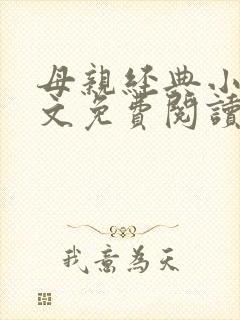 母親經典小
文免費閱讀
我意為天